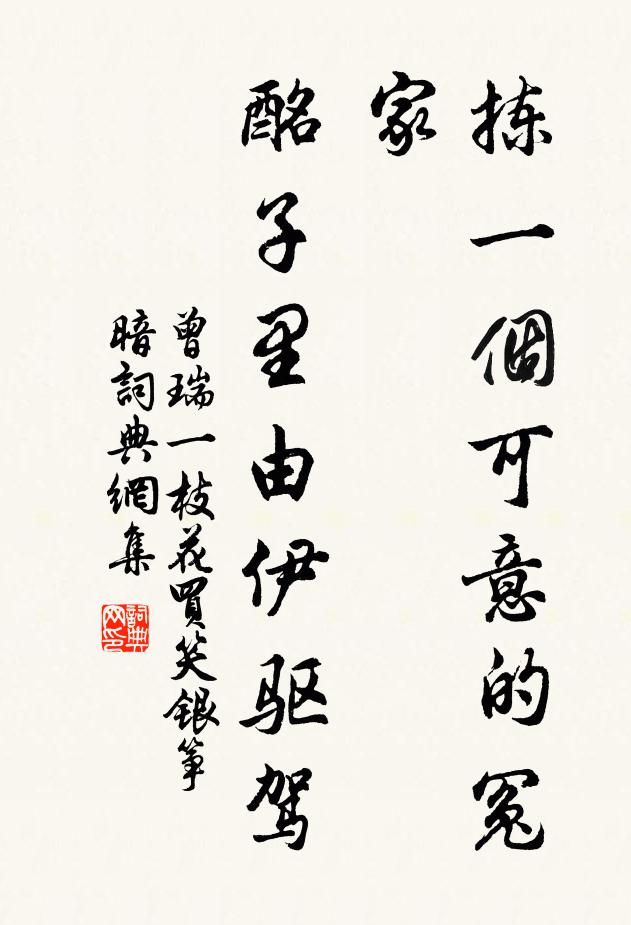 拣一個可意的冤
家
酩子里由伊驱驾
曾瑞一枝花買笑銀箏
暗詞典網集
詞典
网印